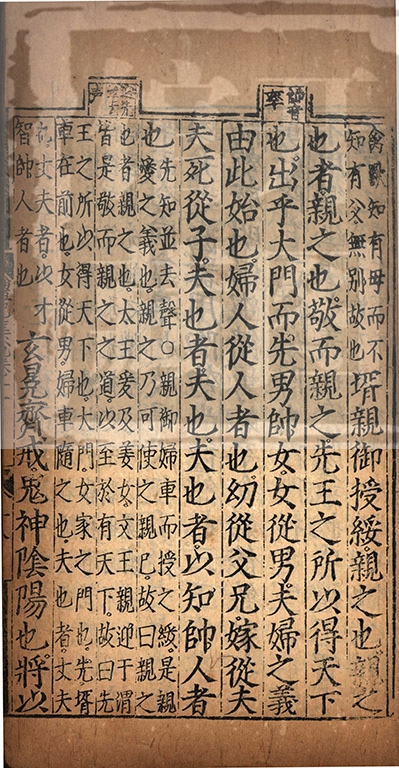 帥音
率
禽獸知有母而不
知有父無別故也
壻親御授綏親之也親之
也者親之也敬而親之先王之所以得天下
也出乎大門而先男帥女女從男夫婦之義
由此始也婦人從人者也幼從父兄嫁從夫
夫死從子夫也者夫也夫也者以知帥人者
也
先知並去聲○親御婦車而授之綏是親
愛之義也親之乃可使之親已故曰親之
也者親之也太王爰及姜女文王親迎于渭
皆是敬而親之之道以至於有天下故曰先
王之所以得天下也大門女家之門也先壻
車在前也女從男婦車隨之也夫也者丈夫
也丈夫者以才
智帥人者也
玄冕齊戒鬼神陰陽也將以